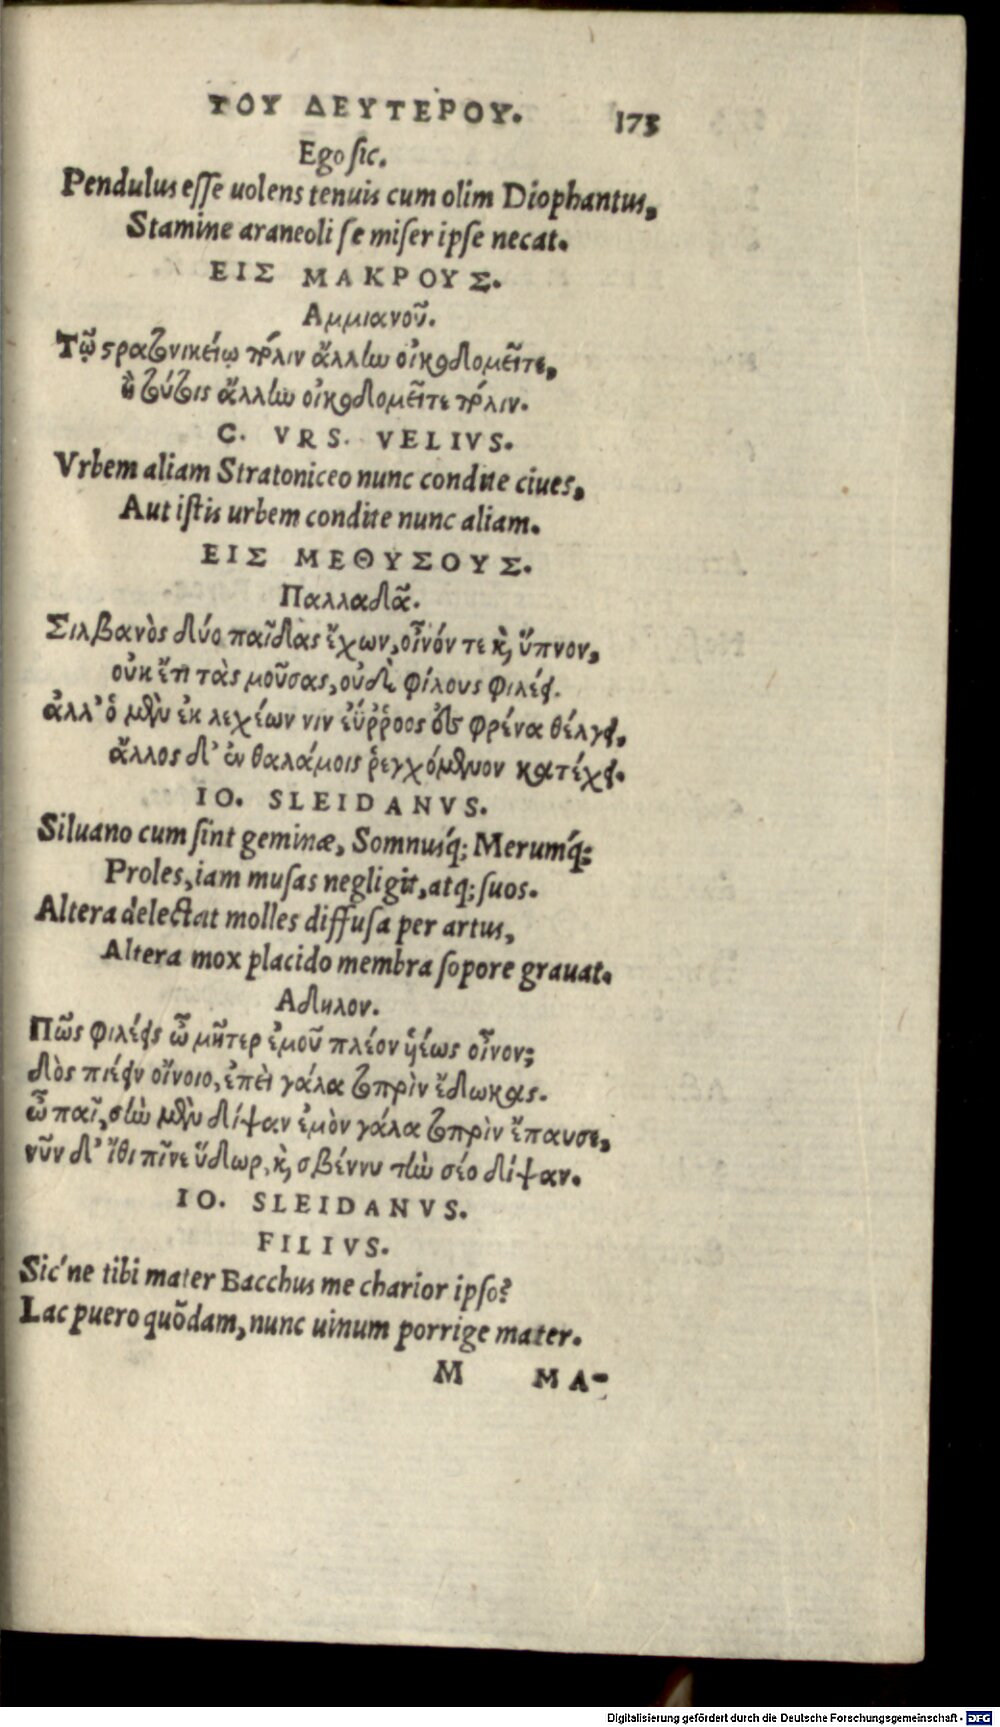 ΤΟΥ ΔΕΥΤΕΡΟΥ. 173
Ego ſic.
Pendulus eſſe uolens tenuis cum olim Diophantus,
Stamine araneoli ſe miſer ipſe necat.
ΕΙΣ ΜΑΚΡΟΥΣ.
Αμμιανοῦ.
Τῷ στρατονικείῳ πόλιν ἄλλην οἰκοδομεῖτε,
ἢ τούτοις ἄλλην οἰκοδομεῖτε πόλιν.
C. VRS. VELIVS.
Vrbem aliam Stratoniceo nunc condite ciues,
Aut iſtis urbem condite nunc aliam.
ΕΙΣ ΜΕΘΥΣΟΥΣ.
Παλλαδᾶ.
Σιλβανὸς δύο παῖδας ἔχων, οἶνόν τε κὶ, ὕπνον,
οὐκ ἔτι τὰς μοῦσας, οὐδὲ φίλους φιλέει.
ἀλλ' ὁ μὲν ἐκ λεχέων νιν ἐΰῤῥοος ἐς φρένα θέλγει,
ἄλλος δ' ἐν θαλάμοις ῥεγχόμενον κατέχει.
IO. SLEIDANVS.
Siluano cum ſint geminæ, Somnuśq; Merumq́;
Proles, iam muſas negligit, atq; ſuos.
Altera delectat molles diffuſa per artus,
Altera mox placido membra ſopore grauat.
Αδηλον.
Πῶς φιλέεις ὦ μῆτερ ἐμοῦ πλέον ἡέως οἶνον;
δὸς πιέειν οἴνοιο, ἐπεὶ γάλα τοπρὶν ἔδωκας.
ὦ παῖ, σὴν μὲν δίψαν ἐμὸν γάλα τοπρὶν ἔπαυσε,
νῦν δ' ἴθι πῖνε ὕδωρ, κὶ, σβέννυ τὴν σέο δίψαν.
IO. SLEIDANVS.
FILIVS.
Sic'ne tibi mater Bacchus me charior ipſo?
Lac puero quōdam, nunc uinum porrige mater.
M MA-
Digitalisierung gefördert durch die Deutsche Forschungsgemeinschaft - DFG